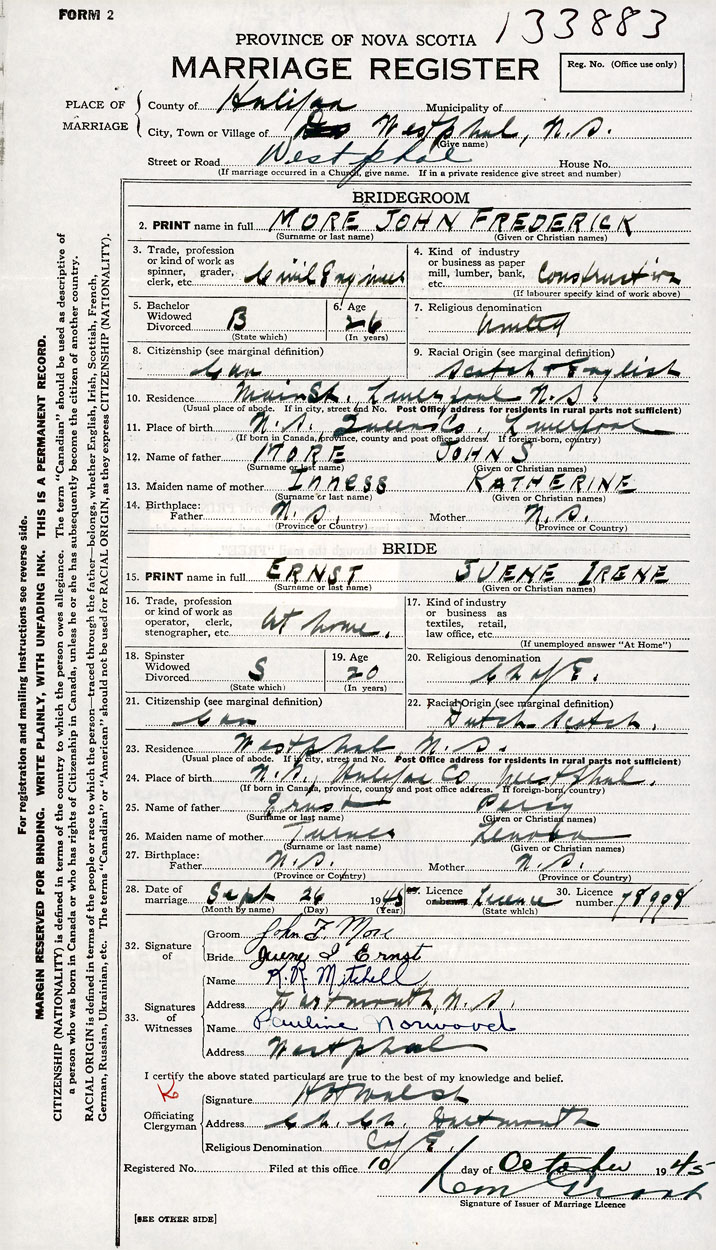 FORM 2
133883
PROVINCE OF NOVA SCOTIA
MARRIAGE REGISTER
Reg. No. (Office use only)
PLACE OF MARRIAGE
County of Halifax Municipality of
City, Town or Village of Westphal, N.S.
(Give name)
Street or Road Westphal House No.
(If marriage occurred in a Church, give name. If in a private residence give street and number)
BRIDEGROOM
2. PRINT name in full MORE JOHN FREDERICK
(Surname or last name) (Given or Christian names)
3. Trade, profession or kind of work as spinner, grader, clerk, etc. Civil Engineer
4. Kind of industry or business as paper mill, lumber, bank, etc. Construction
(If labourer specify kind of work above)
5. Bachelor Widowed Divorced B
(State which)
6. Age 26
(In years)
7. Religious denomination United
8. Citizenship (see marginal definition) Can
9. Racial Origin (see marginal definition) Scotch + English
10. Residence Main St. Liverpool N.S.
(Usual place of abode. If in city, street and No. Post Office address for residents in rural parts not sufficient)
11. Place of birth N.S. Queens Co. Liverpool
(If born in Canada, province, county and post office address. If foreign-born, country)
12. Name of father MORE JOHN S.
(Surname or last name) (Given or Christian names)
13. Maiden name of mother INNESS KATHERINE
(Surname or last name) (Given or Christian names)
14. Birthplace:
Father N.S. Mother N.S.
(Province or Country) (Province or Country)
BRIDE
15. PRINT name in full ERNST JUENE IRENE
(Surname or last name) (Given or Christian names)
16. Trade, profession or kind of work as operator, clerk, stenographer, etc. At home.
17. Kind of industry or business as textiles, retail, law office, etc.
(If unemployed answer "At Home")
18. Spinster Widowed Divorced S
(State which)
19. Age 20
(In years)
20. Religious denomination Ch of E.
21. Citizenship (see marginal definition) Can
22. Racial Origin (see marginal definition) Dutch Scotch.
23. Residence Westphal N.S.
(Usual place of abode. If in city, street and No. Post Office address for residents in rural parts not sufficient)
24. Place of birth N.S. Halifax Co Westphal.
(If born in Canada, province, county and post office address. If foreign-born, country)
25. Name of father Ernst Percy
(Surname or last name) (Given or Christian names)
26. Maiden name of mother Turner Lenora
(Surname or last name) (Given or Christian names)
27. Birthplace:
Father N.S. Mother N.S.
(Province or Country) (Province or Country)
28. Date of marriage Sept 26 1945
(Month by name) (Day) (Year)
Licence or Licence
(State which)
30. Licence number 78998
32. Signature of
Groom John F More
Bride Juene I Ernst
33. Signatures of Witnesses
Name K.R. Mitchell
Address Dartmouth, N.S.
Name Pauline Norwood
Address Westphal
I certify the above stated particulars are true to the best of my knowledge and belief.
Officiating Clergyman
Signature H O Walsh
Address Ch. Ch. Dartmouth
Religious Denomination C of E.
Registered No. Filed at this office 10 day of October 1945
Signature of Issuer of Marriage Licence
[SEE OTHER SIDE]
For registration and mailing instructions see reverse side.
MARGIN RESERVED FOR BINDING. WRITE PLAINLY, WITH UNFADING INK. THIS IS A PERMANENT RECORD.
CITIZENSHIP (NATIONALITY) is defined in terms of the country to which the person owes allegiance. The term "Canadian" should be used as descriptive of
a person who was born in Canada or who has rights of Citizenship in Canada, unless he or she has subsequently become the citizen of another country.
RACIAL ORIGIN is defined in terms of the people or race to which the person—traced through the father—belongs, whether English, Irish, Scottish, French,
German, Russian, Ukrainian, etc. The terms "Canadian" or "American" should not be used for RACIAL ORIGIN, as they express CITIZENSHIP (NATIONALITY).